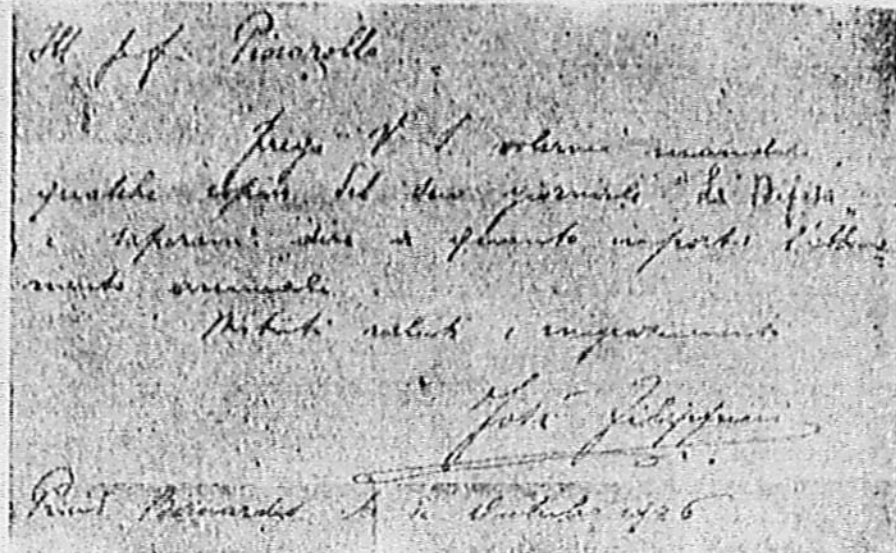 Ill. prof. Piccarolo
Prego V. S. volermi mandare
qualche copia del suo giornale "La Difesa"
e sapermi dire a quanto importa l'abbona
mento annuale.
saluti e ringraziamenti
José Filippini
Bernardes de 1926